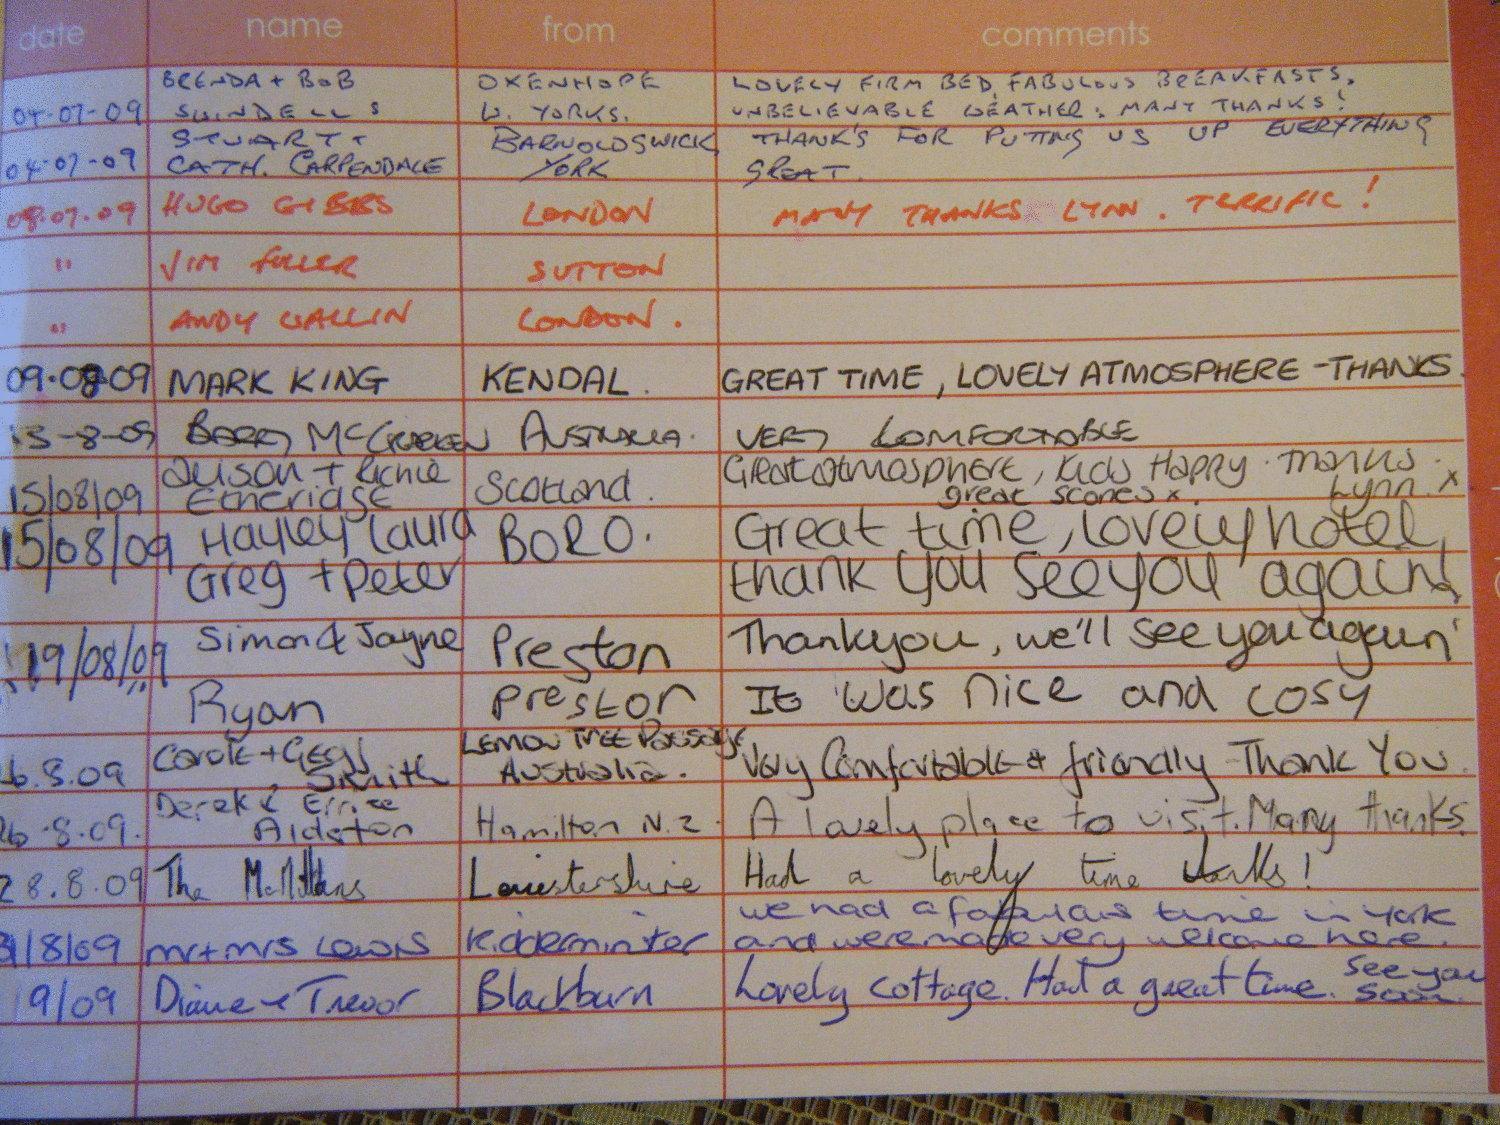 date name from comments
BRENDA + BOB OXENHOPE LOVELY FIRM BED, FABULOUS BREAKFASTS,
04-07-09 SWINDELLS W. YORKS. UNBELIEVABLE WEATHER. MANY THANKS!
STUART + BARNOLDSWICK, THANK'S FOR PUTTING US UP EVERYTHING
04-07-09 CATH. CARPENDALE YORK GREAT.
08.07.09 HUGO GIBBS LONDON MANY THANKS LYNN. TERRIFIC!
" JIM FULLER SUTTON
" ANDY WALLIN LONDON.
09.08.09 MARK KING KENDAL. GREAT TIME, LOVELY ATMOSPHERE - THANKS.
13-8-09 BARRY McCRACKEN AUSTRALIA. VERY COMFORTABLE
Alison + Richie Great atmosphere, kids Happy. Thanks
15/08/09 Etheridge Scotland. great scones x. Lynn. x
15/08/09 Hayley Laura BORO. Great time, lovely hotel,
Greg + Peter thank you see you again!
19/08/09 Simon & Jayne Preston Thankyou, we'll see you again'
Ryan Preston It was nice and cosy
Carole + Geoff LEMON TREE Passage
6.8.09 Smith Australia. Very Comfortable & friendly - Thank You.
Derek &
26-8.09. Alderton Hamilton N.Z. A lovely place to visit. Many thanks.
28.8.09 The McMillans Leicestershire Had a lovely time thanks!
we had a fabulous time in York
31/8/09 mr + mrs Lewis Kidderminster and were made very welcome here.
9/09 Diane & Trevor Blackburn Lovely cottage. Had a great time. See you
soon.